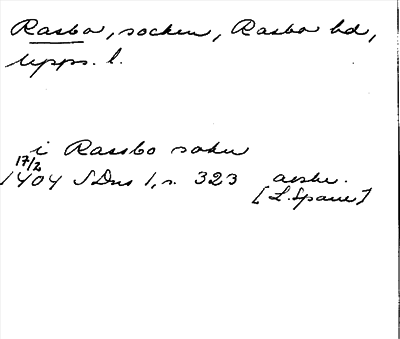 Rasbo, socken, Rasbo hd,
Upps. l.
i Rassbo sokn
17/2
1404 SDns 1, s. 323 avskr.
[L. Sparre]